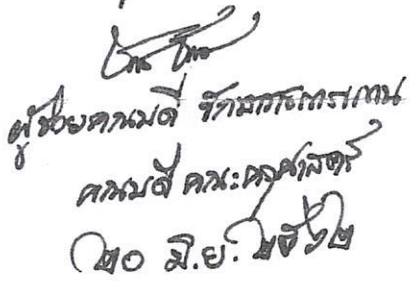 ผู้ช่วยคณบดี รักษาการแทน
คณบดี คณะครุศาสตร์
๒๐ มิ.ย. ๒๕๖๒